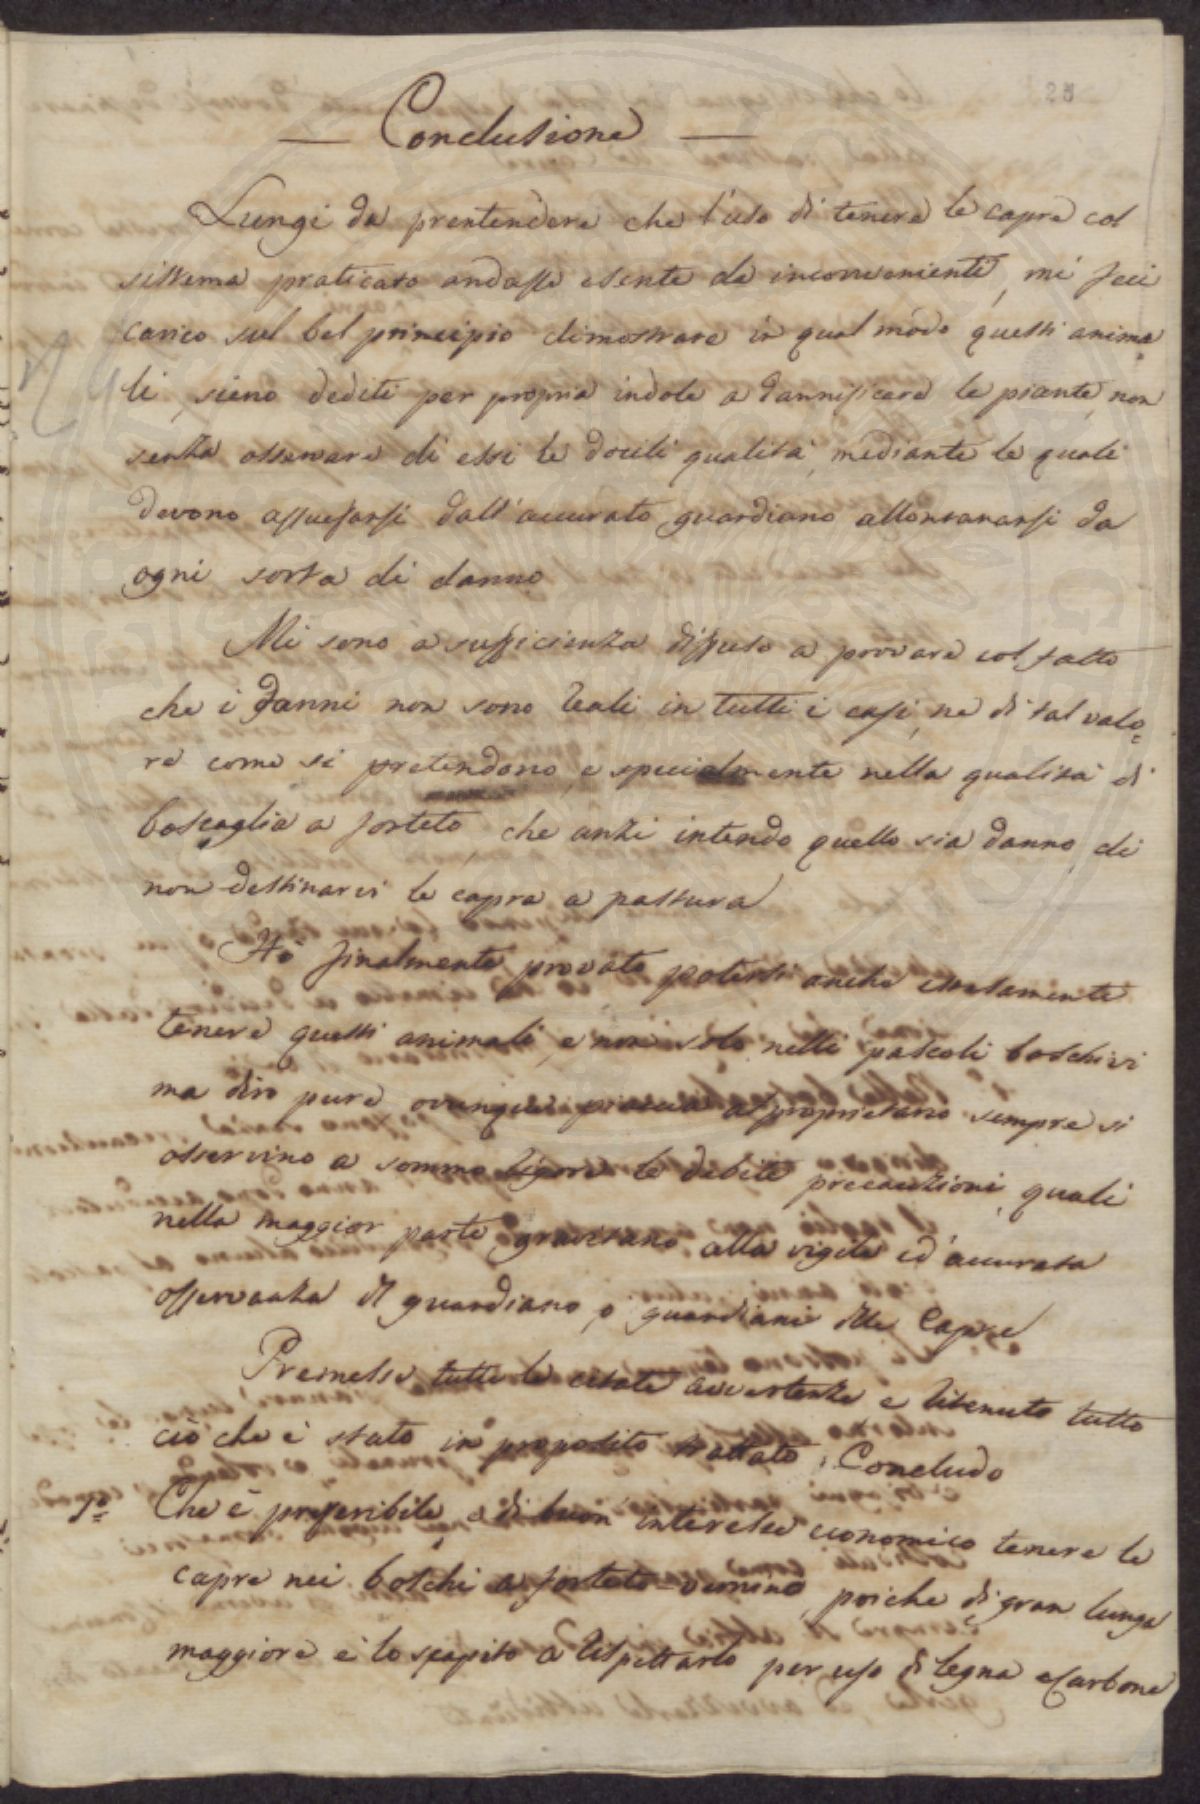 25
— Conclusione —
Lungi da prentendere che l'uso di tenere le capre col
sistema praticato andasse esente da inconveniente, mi feci
carico sul bel principio dimostrare in qual modo questi anima=
li, sieno dediti per propria indole a dannificare le piante, non
senza osservare di essi le docili qualità, mediante le quali
devono assuefarsi dall'accurato guardiano allontanarsi da
ogni sorta di danno
Mi sono a sufficienza diffuso a provare col fatto
che i danni non sono reali in tutti i casi, ne di tal valo=
re come si pretendono, e specialmente nella qualità di
boscaglia a forteto, che anzi intendo quello sia danno, di
non destinarvi le capre a pastura
Hò finalmente provato potersi anche esattamente
tenere questi animali, e non solo nelli pascoli boschivi
ma dirò pure ovunque piaccia al proprietario sempre si
osservino a sommo rigore le debite precauzioni, quali
nella maggior parte gravitano alla vigile ed'accurata
osservanza del guardiano, o guardiani delle Capre
Premesse tutte le citate avvertenze e ritenuto tutto
ciò che è stato in proposito trattato, Concludo
1º Che è preferibile e di buon interesse economico tenere le
capre nei boschi a forteto vernino, poiche di gran lunga
maggiore è lo scapito a rispettarlo per uso di legna e Carbone